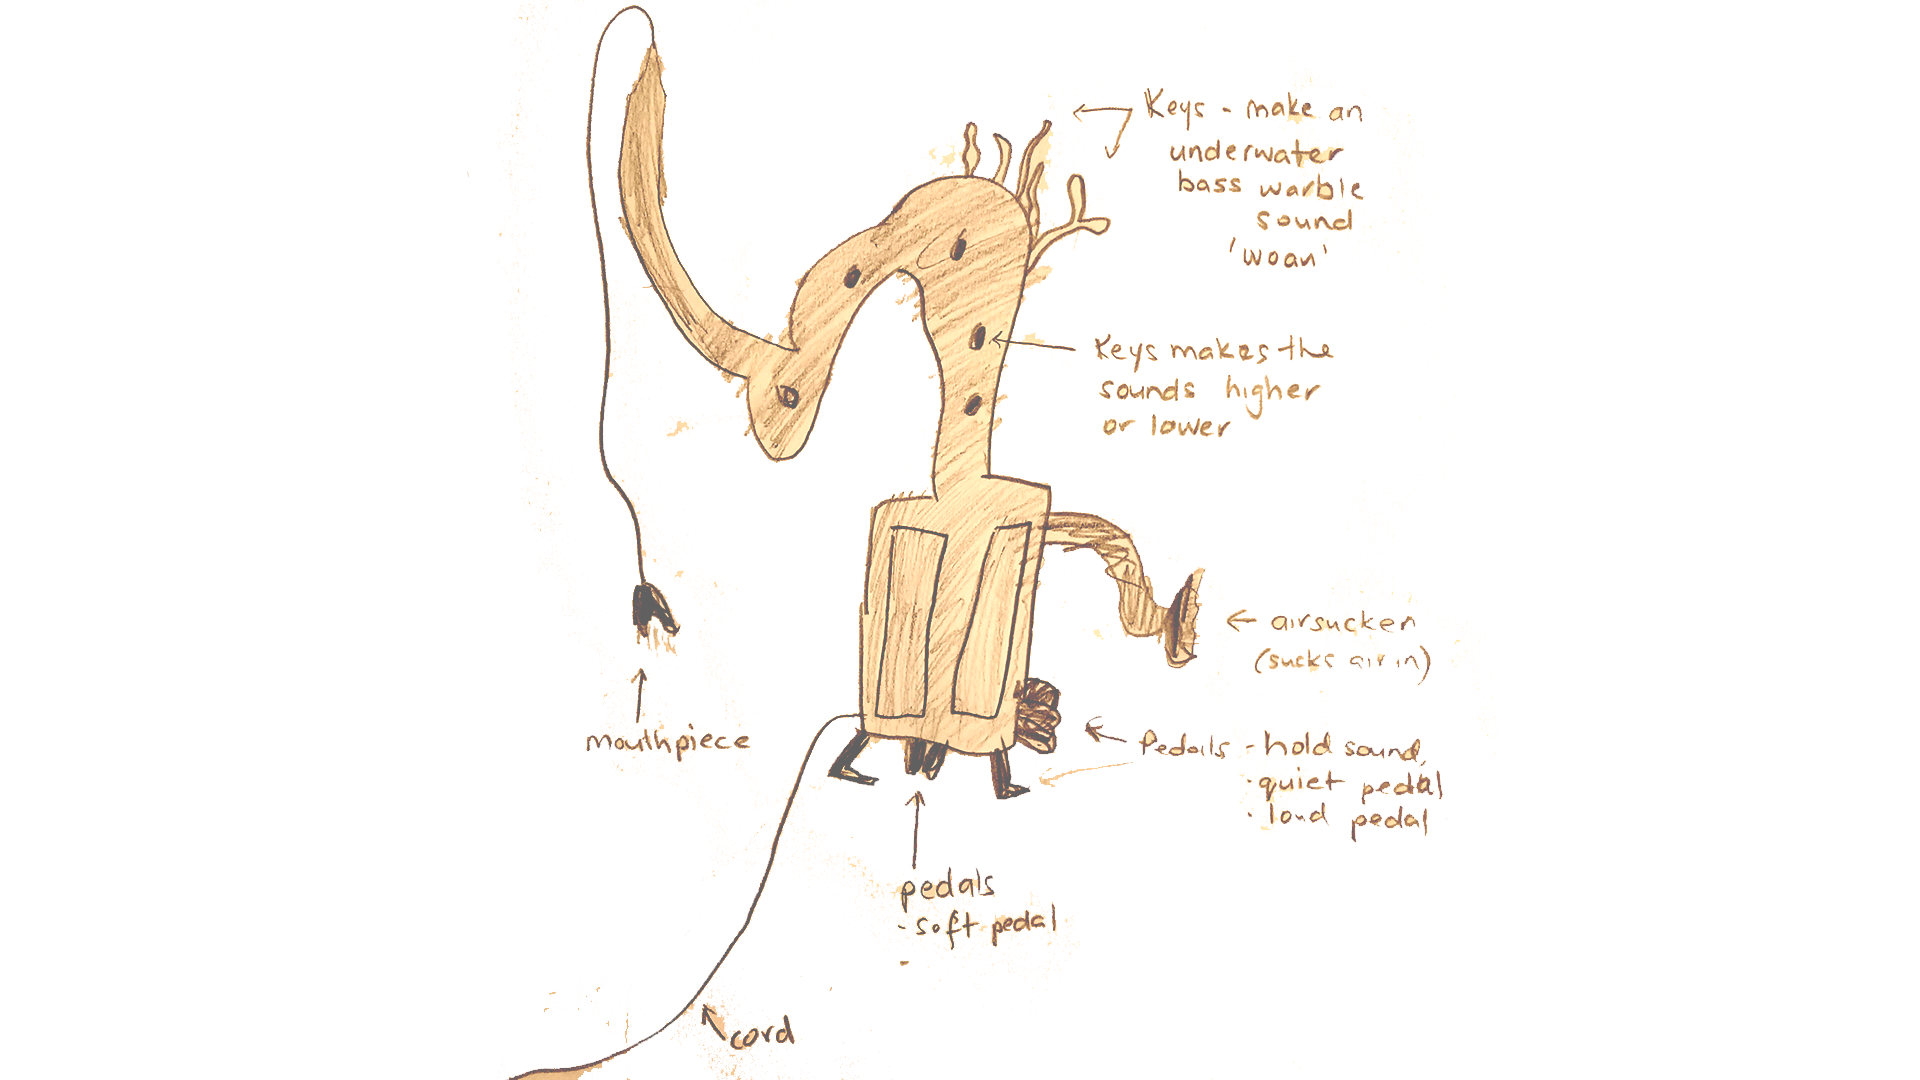 Keys - make an
underwater
bass warble
sound
'woan'
Keys makes the
sounds higher
or lower
airsucker
(sucks air in)
mouthpiece
Pedals - hold sound,
· quiet pedal
· loud pedal
pedals
- soft pedal
cord